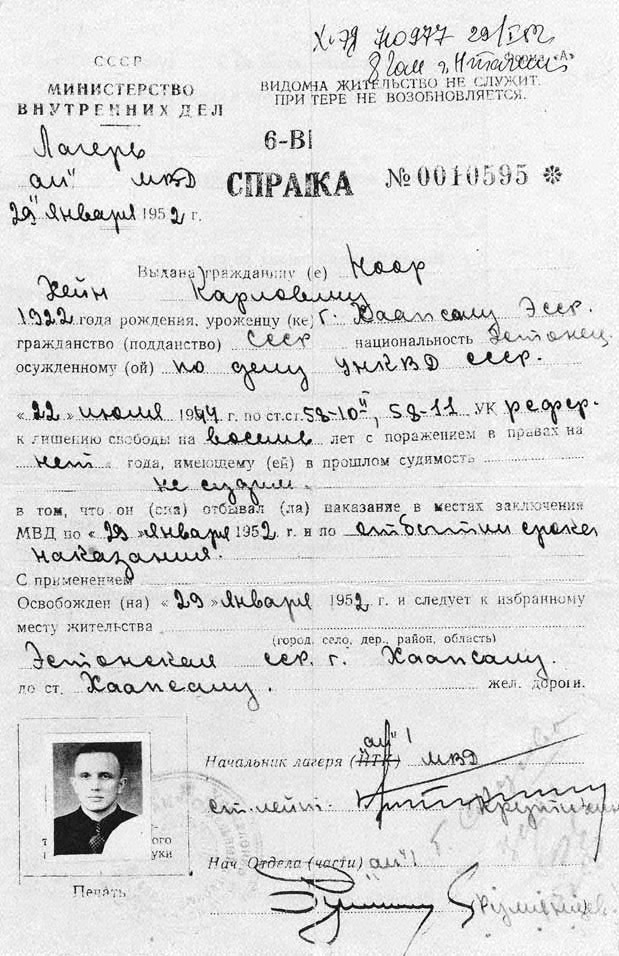 X-79 710977 29/I 52
СССР
Форма „А"
МИНИСТЕРСТВО
ВНУТРЕННИХ ДЕЛ
ВИДОМ НА ЖИТЕЛЬСТВО НЕ СЛУЖИТ.
ПРИ УТЕРЕ НЕ ВОЗОБНОВЛЯЕТСЯ.
Лагерь
МВД
29 " января 1952 г.
6-ВІ
СПРАВКА
№ 0010595 *
Выдана гражданину (е) Ноор
Хейн Карлович
1922 года рождения, уроженцу (ке) г. Хаапсалу Эсср.
гражданство (подданство) СССР национальность Эстонец.
осужденному (ой) по делу УНКВД СССР.
« 22 » июля 1944 г. по ст.ст. 58-10 II, 58-11 УК РСФСР.
к лишению свободы на восемь лет с поражением в правах на
нет года, имеющему (ей) в прошлом судимость
не судим.
в том, что он (она) отбывал (ла) наказание в местах заключения
МВД по « 29 » января 1952 г. и по отбытии срока
наказания.
С применением
Освобожден (на) « 29 » января 1952 г. и следует к избранному
месту жительства
(город, село, дер., район, область)
Эстонская сср. г. Хаапсалу.
до ст. Хаапсалу. жел. дороги.
Начальник лагеря (ИТК) МВД
ст. лейт.
Нач. Отдела (части)
Печать